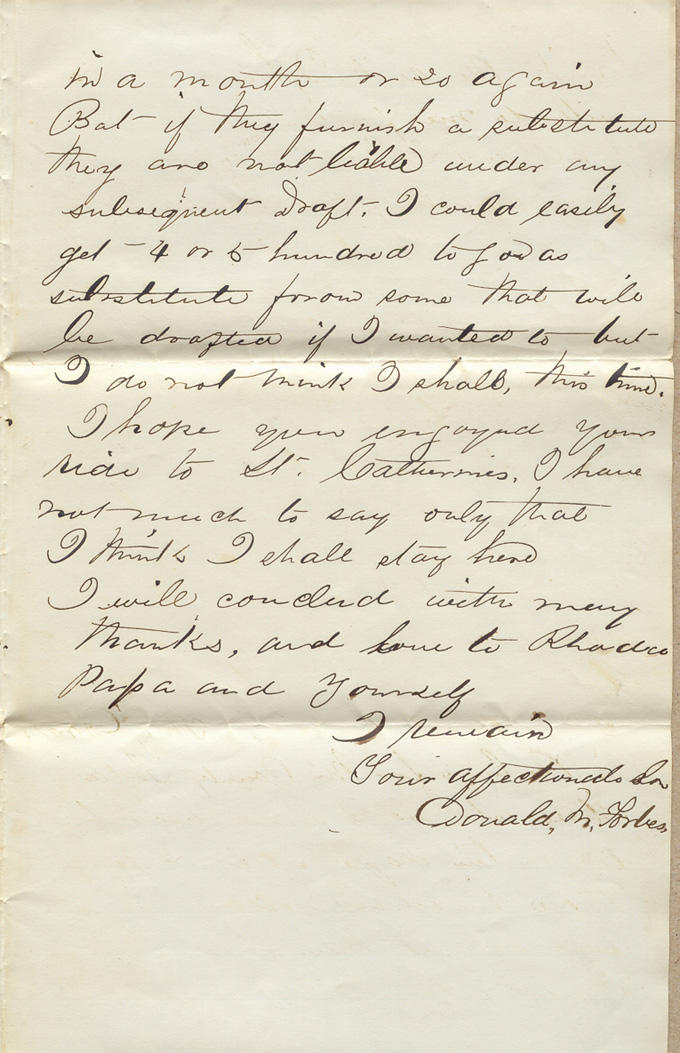 in a month or so again
But if they furnish a substitute
they are not liable under any
subsequent Draft. I could easily
get 4 or 5 hundred to go as
substitute from some that will
be drafted if I wanted to but
I do not think I shall, this time.
I hope you engoyed your
ride to St. Catherines, I have
not much to say only that
I think I shall stay here
I will conclud with many
thanks, and love to Rhoda
Papa and Yourself
I remain
Your affectionate Son
Donald, M, Forbes